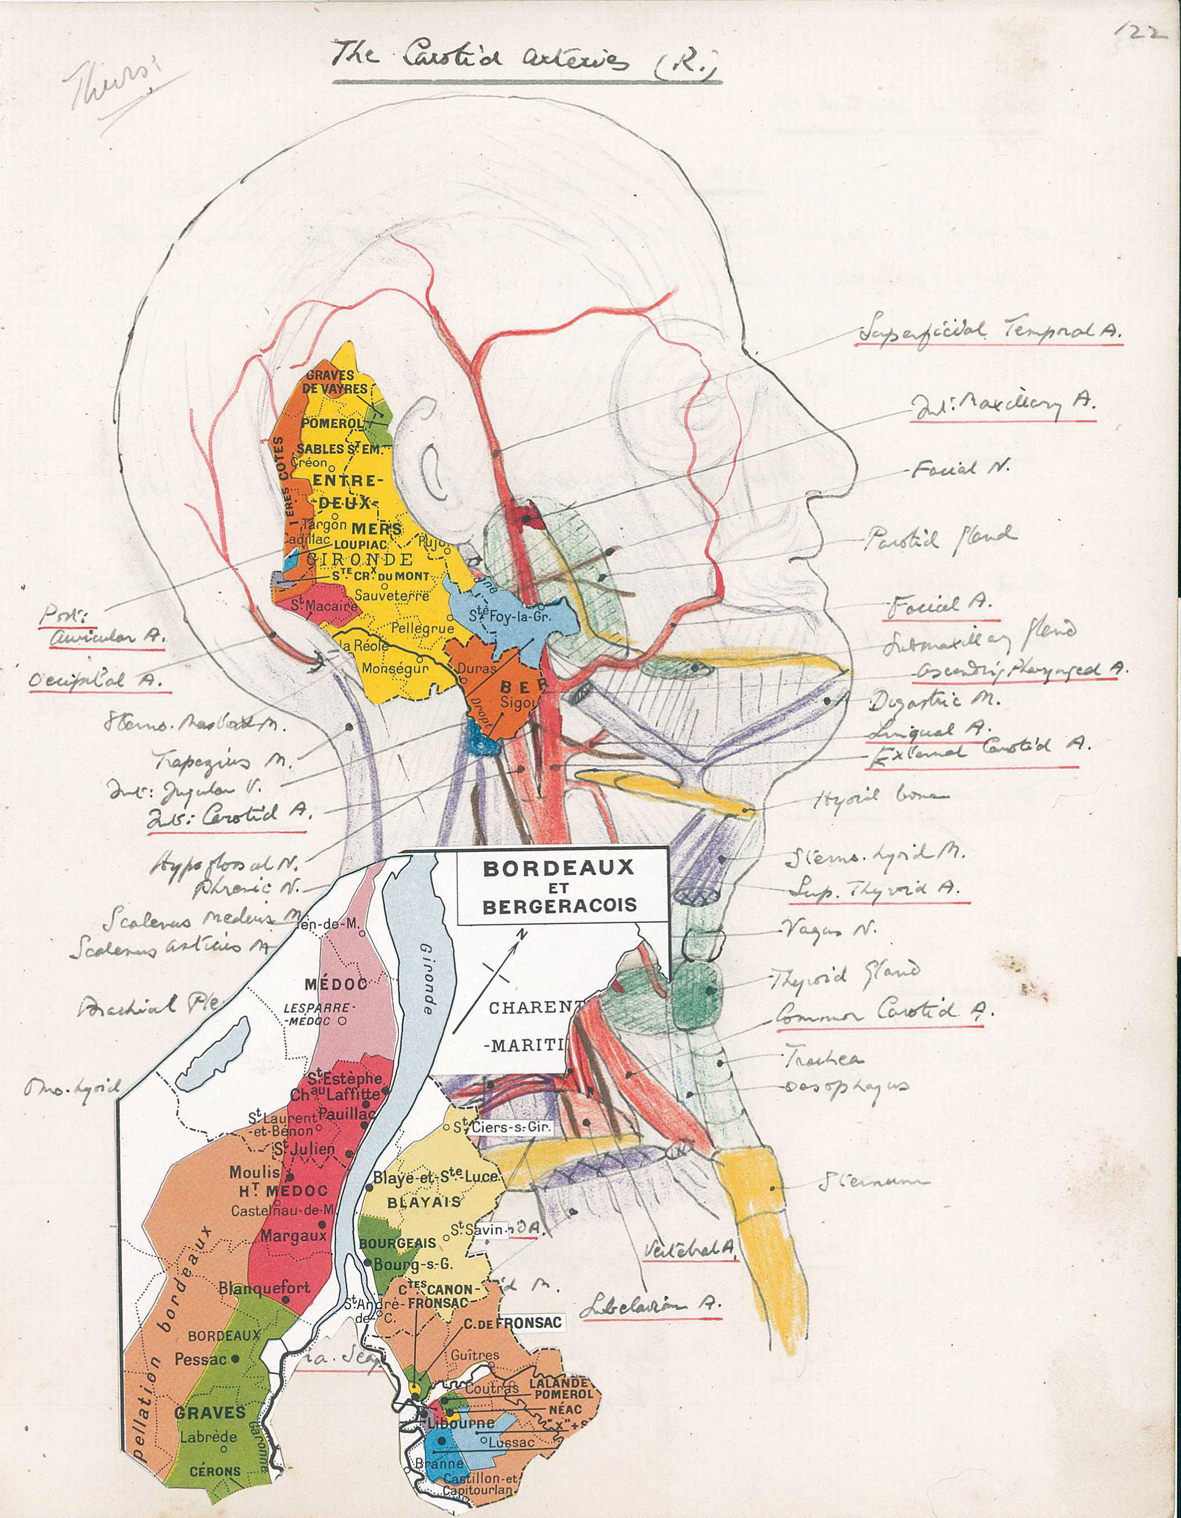 122
The Carotid Arteries (R.)
Superficial Temporal A.
Int: Maxillary A.
Facial N.
Parotid gland
Facial A.
Submaxillary gland
Ascending Pharyngeal A.
Digastric M.
Lingual A.
External Carotid A.
Hyoid bone
Sterno. hyoid M.
Sup. Thyroid A.
Vagus N.
Thyroid Gland
Common Carotid A.
Trachea
Oesophagus
Sternum
Vertebral A.
Subclavian A.
Post:
Auricular A.
Occipital A.
Sterno. Mastoid M.
Trapezius M.
Int: Jugular V.
Int: Carotid A.
Hypoglossal N.
Phrenic N.
Scalenus Medius M.
Scalenus Anticus M
Brachial Ple
Omo. hyoid
GRAVES
DE VAYRES
POMEROL
SABLES ST EM.
Créon
1ERES COTES
ENTRE-
-DEUX-
MERS
Targon
Cadillac
LOUPIAC
Pujo
GIRONDE
STE CRX DU MONT
Sauveterre
St Macaire
Ste Foy-la-Gr.
Pellegrue
la Réole
Monségur
Duras
BER
Sigou
Dropt
BORDEAUX
ET
BERGERACOIS
N
CHARENT
-MARITI
Gironde
en-de-M.
MÉDOC
LESPARRE-
-MÉDOC
St Estèphe
Chau Laffitte
St Laurent
-et-Bénon
Pauillac
St Julien
Moulis
HT MÉDOC
Castelnau-de-M
Margaux
Blanquefort
St Ciers-s-Gir.
Blaye-et-Ste Luce
BLAYAIS
St Savin
A.
BOURGEAIS
Bourg-s-G.
CTES CANON-
-FRONSAC
St André-
de-C.
C. DE FRONSAC
Guîtres
Coutras
LALANDE
POMEROL
NÉAC
Libourne
Lussac
Branne
Castillon-et-
Capitourlan
BORDEAUX
Pessac
GRAVES
Labrède
CÉRONS
Garonne
pellation bordeaux